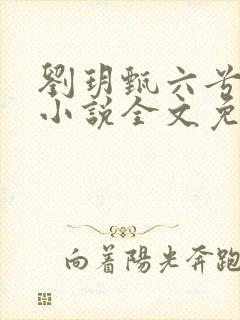 劉玥甄六兮
小說全文免
向着陽光奔跑